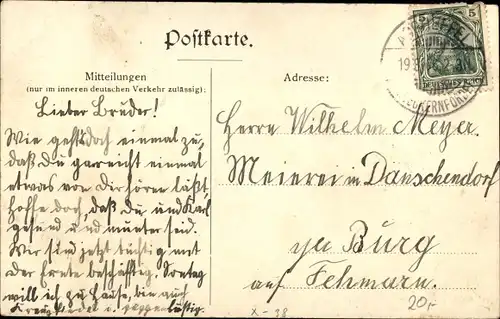 Postkarte.
Mitteilungen
(nur im inneren deutschen Verkehr zulässig):
Adresse:
5 5
19
ECKERNFÖRDE
Lieber Bruder!
Wie gehts doch einmal zu,
daß du garnicht einmal
etwas von dir hören läßt,
hoffe doch, daß du und Karl
gesund und munter seid.
Wir sind jetzt tüchtig mit
der Ernte beschäftigt. Sonntag
will ich zu Hause, bin auch
Herrn Wilhelm Meyer.
Meierei in Danschendorf
Burg
auf Fehmarn.
X-38
20,-